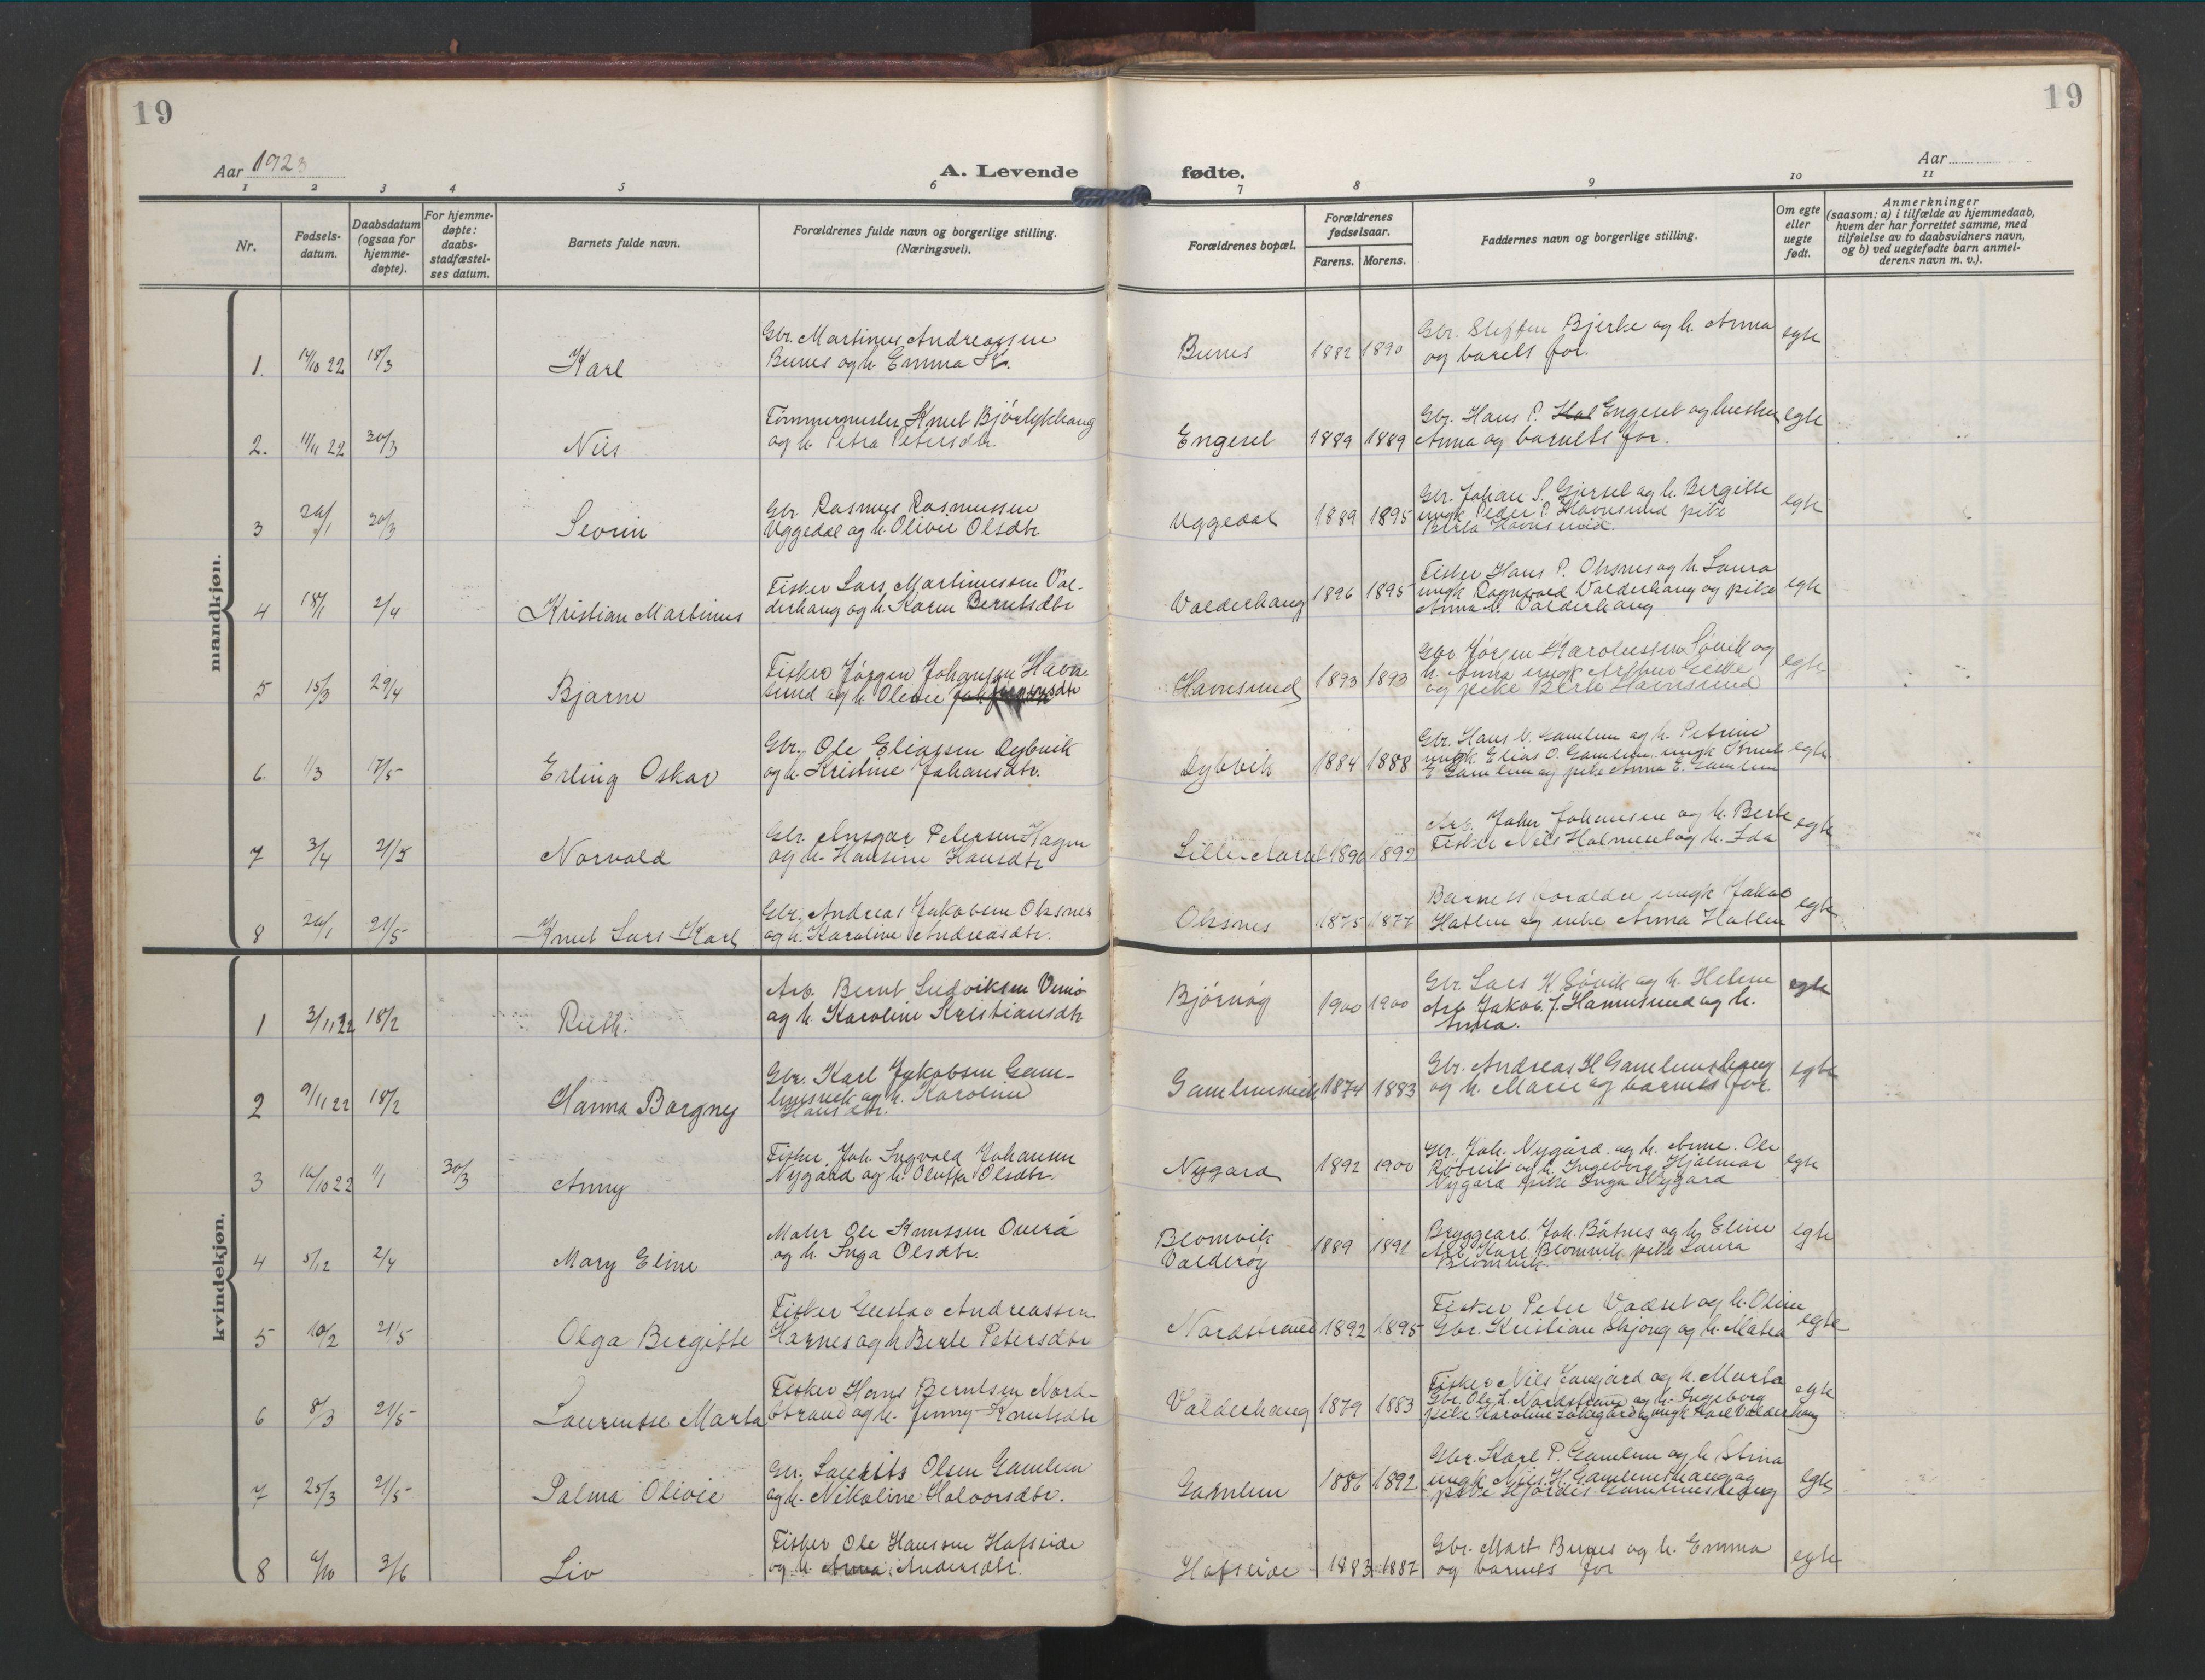 19
19
Aar 1923
A. Levende fødte.
Aar
1 2 3 4 5 6 7 8 9 10 11
Nr.
Fødsels-
datum.
Daabsdatum
(ogsaa for
hjemme-
døpte).
For hjemme-
døpte:
daabs-
stadfæstel-
ses datum.
Barnets fulde navn.
Forældrenes fulde navn og borgerlige stilling.
(Næringsvei).
Forældrenes bopæl.
Forældrenes
fødselsaar.
Farens. Morens.
Faddernes navn og borgerlige stilling.
Om egte
eller
uegte
født.
Anmerkninger
(saasom: a) i tilfælde av hjemmedaab,
hvem der har forrettet samme, med
tilføielse av to daabsvidners navn,
og b) ved uegtefødte barn anmel-
derens navn m. v.).
mandkjøn.
1. 14/10 22 18/3 Karl
Gbr. Martinus Andreassen
Bunes og h. Emma K.
Bunes 1882 1890
Gbr. Steffen Bjerke og h. Anna
og barets for.
egte
2. 11/11 22 30/3 Nils
Tømmermester Knut Bjørlykhaug
og h. Petra Petersdtr.
Engeset 1889 1889
Gbr. Hans P. Engeset og hustru
Anna og barnets for.
egte
3 /1 30/3 Sevrin
Gbr. Rasmus Rasmussen
Uggedal og h. Olivie Olsdtr.
Uggedal 1889 1895
Gbr. Johan S. Gjersel og h. Bergitte
ungk Peder P. Havnsund pike
Berta Havnsund.
egte
4 18/1 2/4 Kristian Martinus
Fisker Lars Martinussen Val-
derhaug og h. Karen Berntsdtr
Valderhaug 1896 1895
Fisker Hans P. Oksnes og h. Laura
ungk Ragnvald Valderhaug og pike
Anna Valderhaug
egte
5 15/3 29/4 Bjarne
Fisker Jørgen Johansen Havn-
sund og h. Olivie
Havnsund 1893 1893
Gbr Jørgen Karolussen Søvik og
h. Anna ungk Arthur Giske
og pike Berte Havnsund
egte
6. 1/3 17/5 Erling Oskar
Gbr. Ole Eliassen Dybvik
og h. Kristine Johansdtr.
Dybvik 1884 1888
Gbr. Hans V. Gamlem og h. Petrine
ungk. Elias O. Gamlem. ungk Knut
E Gamlem og pike Anna E. Gamlem
egte
7 3/4 21/5 Norvald
Gbr. Ansgar Petersen Hagen
og h. Hansine Hansdtr
Lille-Aarset 1896 1899
Arb. Johan Johansen og h. Berte
Fisker Nils Holmeset og h. Ida
egte
8 /1 21/5 Knut Lars Karl
Gbr. Andreas Jakobsen Oksnes
og h. Karoline Andreasdtr.
Oksnes 1875 1877
Barnets foreldre ungk Jakob
Hatlen og enke Anna Hatlen
egte
kvindekjøn.
1 3/11 22 18/2 Ruth.
Arb. Bernt Ludviksen
og h. Karoline Kristiansdtr
Bjørnøy 1900 1900
Gbr. Lars K Søvik og h. Helene
Arb Jakob J. Hamnsund og h.
Anna.
egte
2 9/11 22 18/2 Hanna Borgny
Gbr. Karl Jakobsen Gam-
lemsvik og h. Karoline
Hansdtr.
Gamlemsvik 1874 1883
Gbr. Andreas H Gamlemshaug
og h. Marie og barnets for.
egte
3 16/10 22 1/1 30/3 Anny
Fisker Joh. Ingvald Johansen
Nygård og h. Oluffa Olsdtr.
Nygård 1892 1900
Gbr. Joh. Nygård. og h. Anne. Ole
og h. Ingeborg Hjalmar
Nygård pike Inga Nygård
egte
4 5/12 2/4 Mary Eline
Maler Ole Knutssen Overå
og h. Inga Olsdtr.
Blomvik
Valderøy
1889 1891
Bryggearb. Joh. Båtnes og h. Eline
Arb. Karl Blomvik pike Laura
Blomvik.
egte
5 10/2 21/5 Olga Birgitte
Fisker Gustav Andreassen
Harnes og h Berte Petersdtr
Nordstrand 1892 1895
Fisker Peter Vadset og h. Oline
Gbr. Kristian Skjong og h. Matea
egte
6 8/3 21/5 Laurentse Marta
Fisker Hans Berntsen Nord-
strand og h. Jenny Knutsdtr
Valderhaug 1879 1883
Fisker Nils Langård og h. Marta
Gbr. Ole L. Nordstrand og h. Ingeborg
pike Karoline og ungk Karl Valderhaug
egte
7 25/3 21/5 Palma Olivie
Gbr. Laurits Olsen Gamlem
og h. Nikoline Halvorsdtr.
Gamlem 1886 1892
Gbr. Karl P. Gamlem og h. Stina
ungk Nils H. Gamlemshaug og
pike Hjørdis Gamlemshaug
egte
8 /10 3/6 Liv
Fisker Ole Hanssen Hafseide
og h. Anna Andersdtr.
Hafseide 1883 1882
Gbr. Mart Bunes og h. Emma
og barnets for
egte